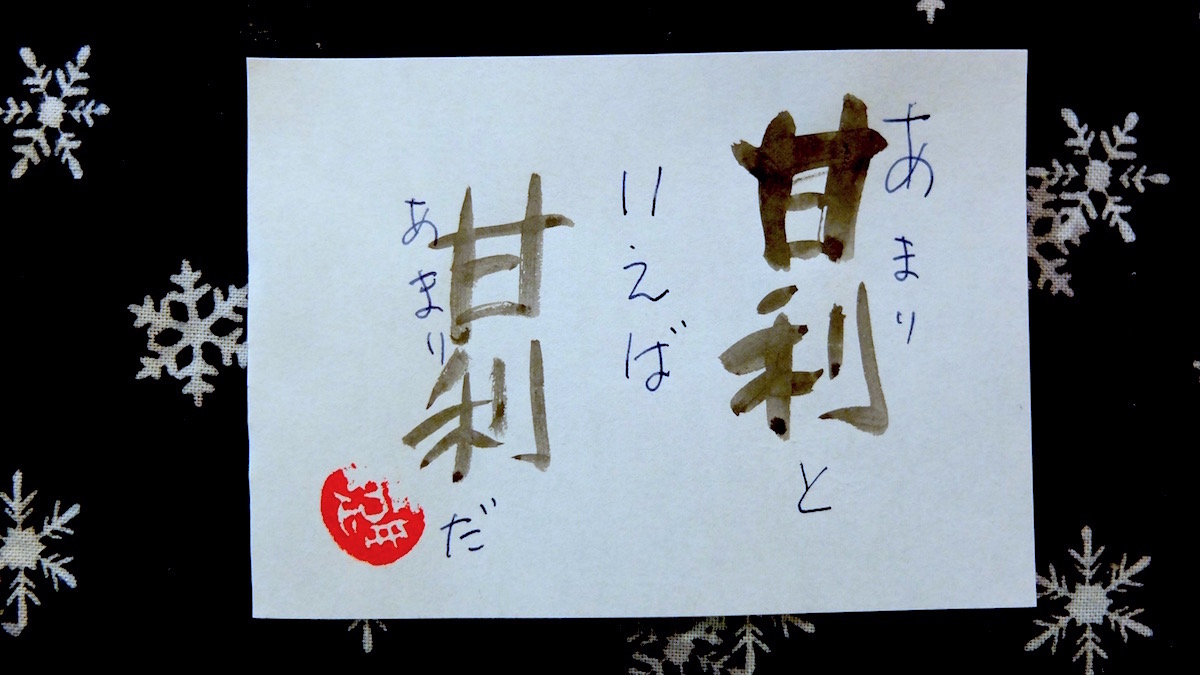 あまり
甘利と
いえば
あまり
甘利だ